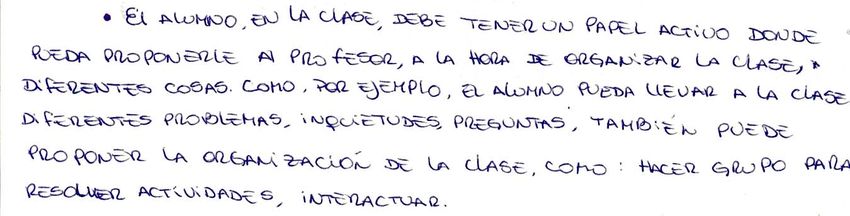 • El ALUMNO, EN LA CLASE, DEBE TENER UN PAPEL ACTIVO DONDE
PUEDA PROPONERLE Al PROFESOR, A LA HORA DE ORGANIZAR LA CLASE,
DIFERENTES COSAS. COMO, POR EJEMPLO, EL ALUMNO PUEDA LLEVAR A LA CLASE
DIFERENTES PROBLEMAS, INQUIETUDES, PREGUNTAS, TAMBIÉN PUEDE
PROPONER LA ORGANIZACIÓN DE LA CLASE, COMO: HACER GRUPO PARA
RESOLVER ACTIVIDADES, INTERACTUAR.